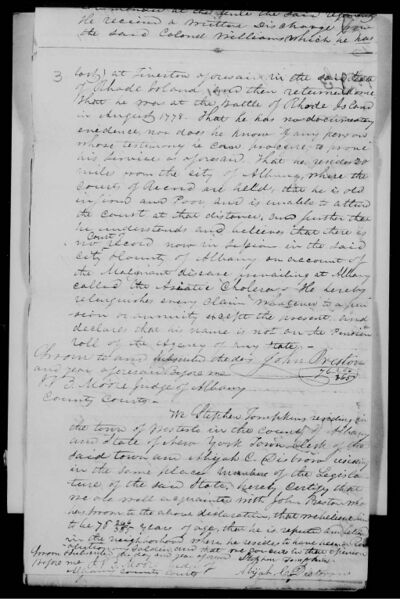 He received a written Discharge from
the said Colonel Williams, which he has
3 lost) at Tiverton aforesaid in the said State
of Rhode Island, and then returned home
That he was at the Battle of Rhode Island
in August 1778. That he has no documentary
evidence nor does he know of any person
whose testimony he can procure to prove
his service as aforesaid. That he resides 20
miles from the City of Albany, where the
Courts of Record are held, that he is old
infirm and Poor and is unable to attend
the Court at that distance, and further that
he understands and believes that there is
no Court of record now in Session in the said
City & County of Albany on account of
the Malignant disease prevailing at Albany
called the Asiatic Cholera. He hereby
relinquishes every claim whatever to a pen
sion or annuity except the present and
declares that his name is not on the Pension
roll of the Agency of any State
Sworn to and subscribed the day John Preston
and year aforesaid before me
Moore Judge of Albany
County Courts
We Stephen Tompkins residing in
the town of Westerlo in the County of Albany
and State of New York Town Clerk of the
said town and Abijah C. Disbrow residing
in the same place Member of the Legisla
ture of the said State, hereby Certify that
we are well acquainted with John Preston who
has sworn to the above declaration, that we believe him
to be 78 years of age, that he is reputed and believed
in the neighborhood where he resides to have been
Stephen Tompkins
before me Moore Judge of
County Courts Abijah C. Disbrow